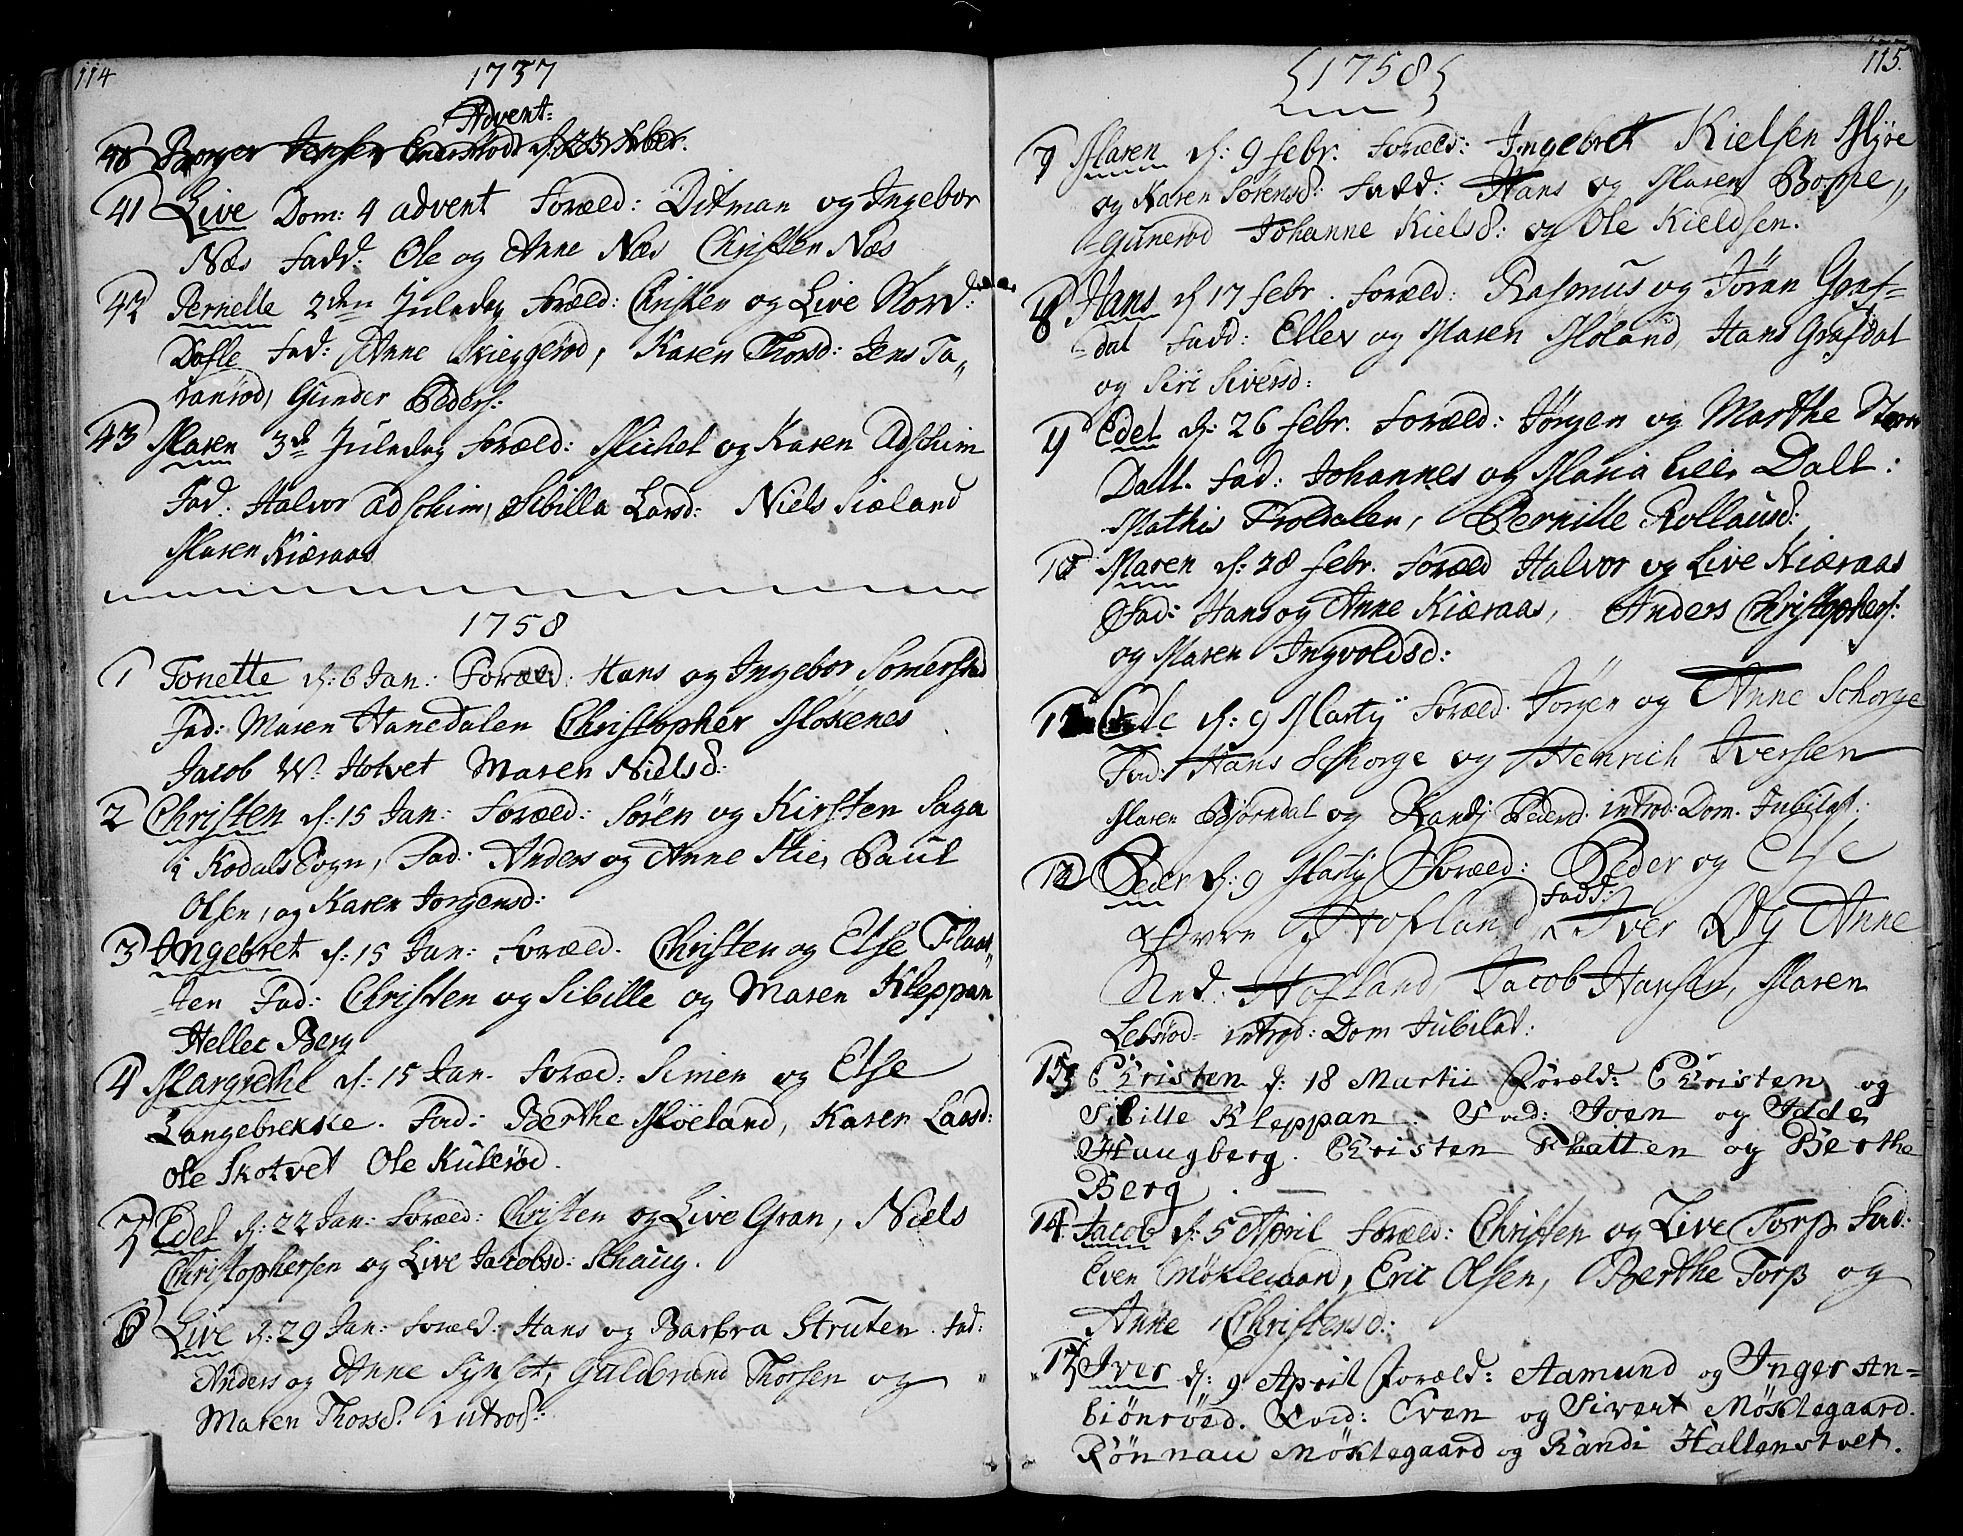 114
1737
Advent:
40 Borger Jensen d. 23
41 Live Dom: 4 advent Foræld: Ditman og Ingebor
Næs Fadd: Ole og Anne Næs Christen Næs
42 Pernelle 2den Juledag Foræld: Christen og Live Nord:
Dofle Fad: Anne Skieggerød, Karen Thorsd: Jens Ta„
ranrød, Gunder Peders:
43 Maren 3d Juledag Foræld: Michel og Karen Adschim
Fad. Halvor Adschim, Sibilla Larsd: Niels Siæland
Maren Kiæraas
1758
1 Tonette d: 6 Jan: Foræld: Hans og Ingebor Somerstad
Fad: Maren Hanedalen Christopher Mosenes
Jacob W. Hotvet Maren Nielsd:
2 Christen d: 15 Jan: Foræld: Sören og Kirsten Saga
i Kodals Sogn, Fad: Anders og Anne Lie, Paul
Olsen, og Karen Jorgensd:
3 Ingebret d: 15 Jan: Foræld. Christen og Else Flaat„
ten Fad: Christen og Sibille og Maren Kleppan
Hellec Berg
4 Margrethe d: 15 Jan. Foræd: Simen og Else
Langebrekke. Fad: Berthe Möeland, Karen Larsd:
Ole Skotvet Ole Kulerød.
5 Edel d: 22 Jan: Foræld: Christen og Live Gran, Niels
Christophersen og Live Jacobsd: Schaug.
6 Live d: 29 Jan: Foræld: Hans og Barbra Struten. Fad:
Anders og Anne Synset, Guldbrand Thorsen og
Maren Thorsd. introd:
115.
1758
7 Maren d: 9 febr. Foræld: Ingebret Kielsen Myre
og Karen Sörensd: Fadd: Hans og Maren Bospe„
Gunerød Johanne Kielsd: og Ole Kieldsen.
8 Hans d 17 febr. Foræld: Rasmus og Jöran Graf=
dal Fadd: Ellev og Maren Möland, Hans Grafdal
og Siri Siversd:
9 Edel d: 26 febr. Foræld: Jörgen og Marthe
Dall. Fad: Johannes og Maria Lille Dall:
Mathis Troldalen, Pernille Rollausd:
10 Maren d: 28 febr. Foræld Halvor og Live Kiæraas
Fad: Hans og Anne Kiæraas, Anders Christophers:
og Maren Ingvoldsd:
11 d: 9 Martij Foræld. Jörgen og Anne Schorge
Fad: Hans Schorge og Heinrich Iversen
Maren Bjorndal og Randi Pedersd. introd: Dom. Jubilat:
12 Peder d: 9 Martij Foræld: Peder og Else
Øvre Hofland, Fadd: Iver Og Anne
Ned: Hofland, Jacob Hansen, Maren
Lebsrød. introd: Dom Jubilat:
13 Christen d: 18 Martii Foræld: Christen og
Sibille Kleppan. Fad: Iven og Idde
Haugberg. Christen Flatten og Berthe
Berg.
14 Jacob d: 5 April Foræld: Christen og Live Torp Fad:
Even Möklegaard, Eric Olsen, Berthe Torp og
Anne Christensd:
15 Iver d: 9 April Foræld: Aamund og Inger An=
biönröed. Fad: Even og Sivert Möklegaard.
Rönnau Möklegaard og Randi Hallenstvet.